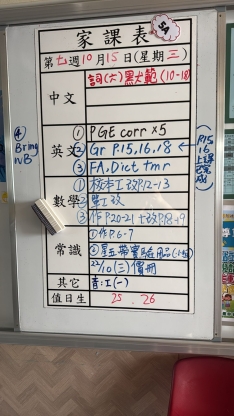 家課表
第七週10月15日(星期三)
中文
詞(六)黑犬範(10-18)
英文
① PGE corr x5
② Gr P15,16,18 ←
③ FA, Dict tmr
④ Bring NB
P.15 16 上課完成
數學
① 核本工改P.12-13
② 整工改
③ 作P20-21 工改P.8+9
常識
① 作P.6-7
② 星五帶實驗用品
22/10 (三)
其它
音:工(一)
值日生
25 . 26